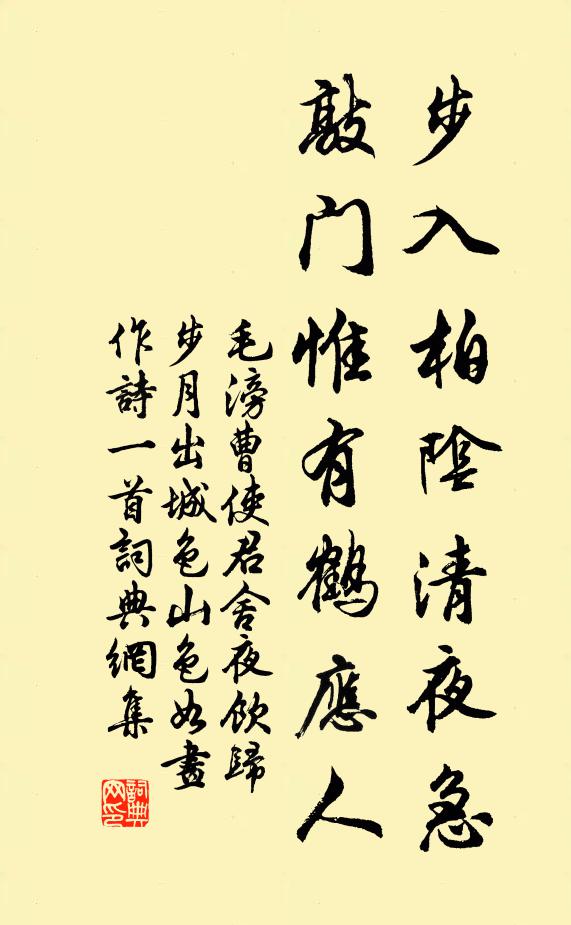 步入柏陰清夜急
敲門惟有鶴應人
毛滂曹使君舍夜飲歸
步月出城色山色如畫
作詩一首詞典網集
詞典网印